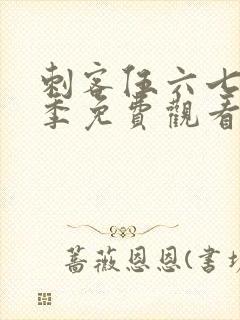 刺客伍六七
季免費觀看
蔷薇恩恩(书坊